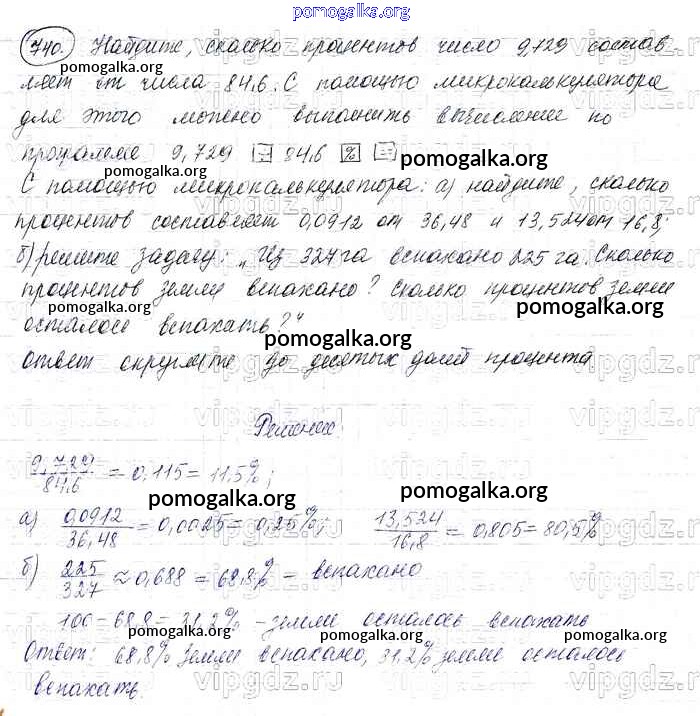 pomogalka.org
740. Найдите, сколько процентов число 9,729 состав
ляет от числа 84,6. С помощью микрокалькулятора
для этого можно выполнить вычисление по
программе 9,729 ÷ 84,6 % =
С помощью микрокалькулятора: а) найдите, сколько
процентов составляет 0,0912 от 36,48 и 13,524 от 16,8;
б) решите задачу: „Из 327 га вспахано 225 га. Сколько
процентов земли вспахано? Сколько процентов земли
осталось вспахать?"
Ответ округлите до десятых долей процента
Решение:
9,729/84,6 = 0,115 = 11,5%;
а) 0,0912/36,48 = 0,0025 = 0,25%; 13,524/16,8 = 0,805 = 80,5%
б) 225/327 ≈ 0,688 = 68,8% – вспахано
100 – 68,8 = 31,2% – земли осталось вспахать
Ответ: 68,8% земли вспахано, 31,2% земли осталось
вспахать.